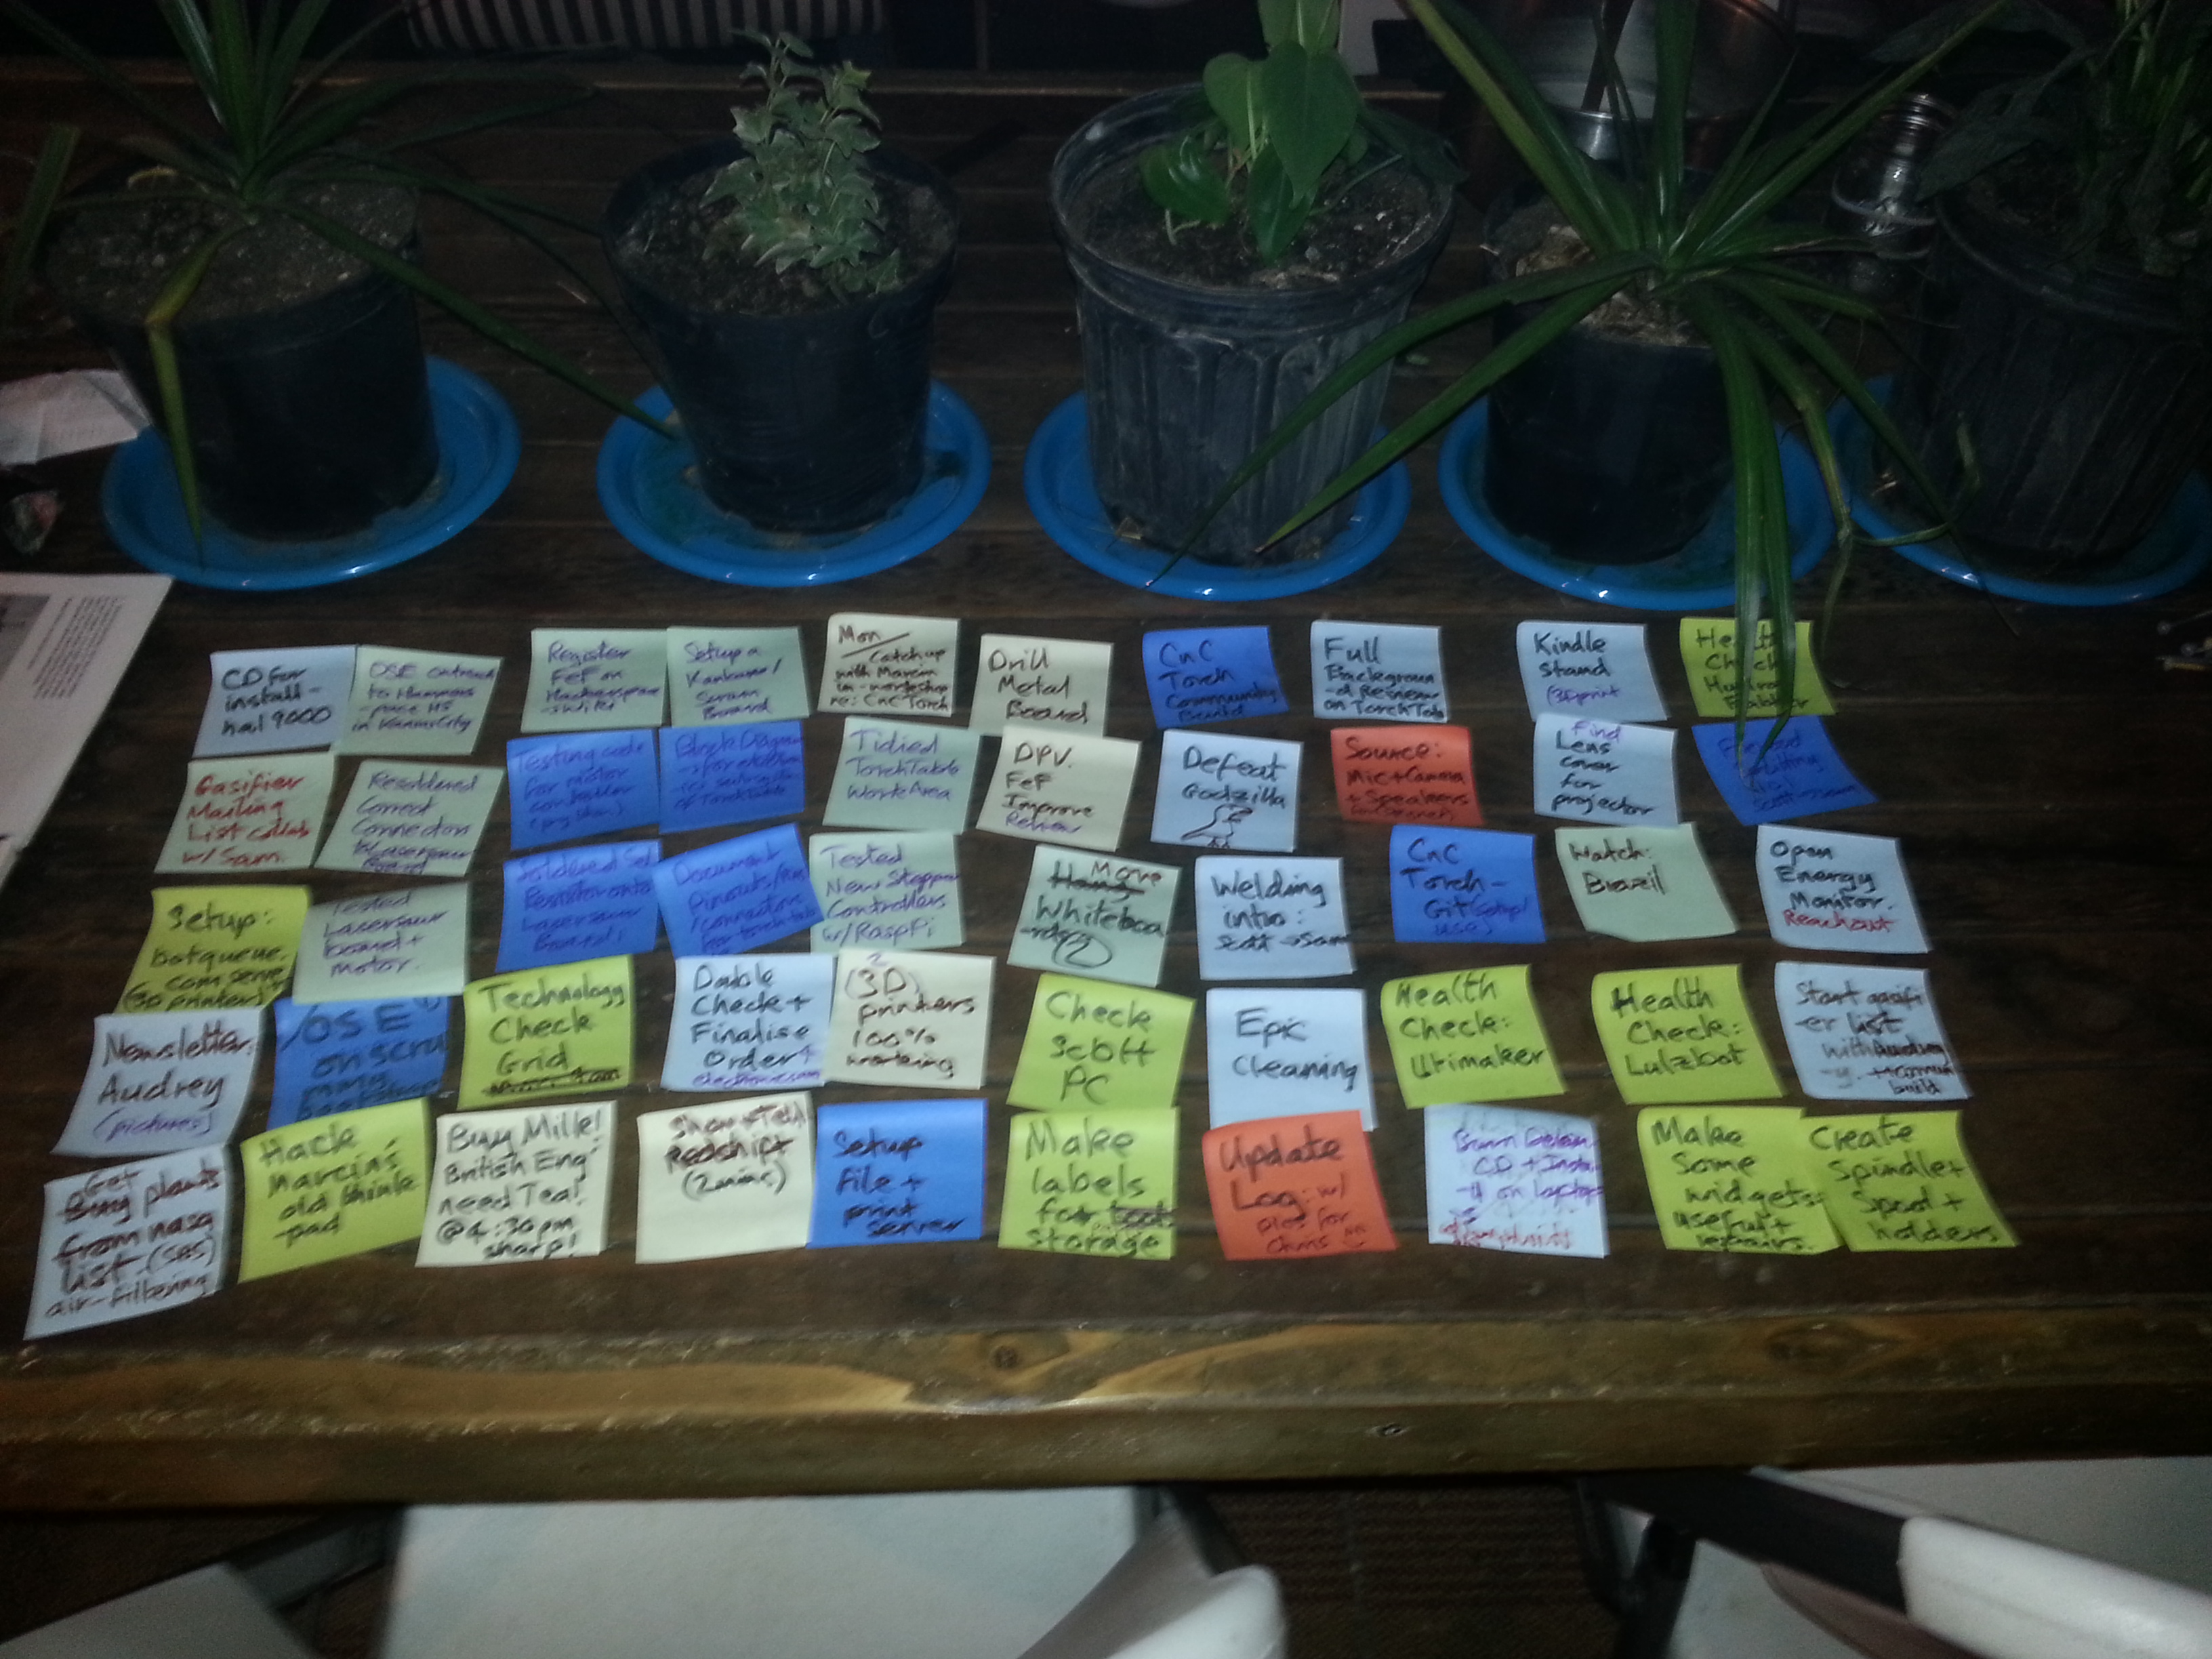 CD for
install-
hal 9000
OSE outreach
to Hammers
-pace HS
in Kansas City
Register
FeF on
Hackerspace
-s Wiki
Setup a
Kanban/
Scrum
Board
Mon/
Catch up
with Marcin
in-workshop
re: CnC Torch
Drill
Metal
Board
CnC
Torch
Community
Build
Full
Backgroun
-d Review
on Torch Tab
Kindle
Stand
(3D print
Health
Check
Gasifier
Mailing
List collab
w/ Sam.
Resoldered
Correct
Connection
to Lasersaur
Board
Testing code
for motor
controller
Block Diagram
of Torch Table
Tidied
Torch Table
Work Area
DPV.
FeF
Improve
Review
Defeat
Godzilla
Source:
Mic + Camera
+ Speakers
Find
Lens
cover
for
projector
Scott → Sam
Setup:
botqueue.
com server
(3D printer)
Tested
Lasersaur
board +
motor.
Soldered
Resistor onto
Lasersaur
Board
Document
Pinouts
/connectors
for torch table
Tested
New Stepper
Controllers
w/ RaspPi
Move
Hang
Whiteboa
-rds (2)
Welding
intro:
Scott → Sam
CnC
Torch -
Git (setup/
use)
Watch:
Brazil
Open
Energy
Monitor.
Reachout
Newsletter:
Audrey
(pictures)
OSE
on scru
mmy
bootstrap
Technology
Check
Grid
Double
Check +
Finalise
Order
electronics
2
(3D)
printers
100%
working
Check
Scott
PC
Epic
Cleaning
Health
Check:
Ultimaker
Health
Check:
Lulzbot
Start gasifi
-er list
with Audrey
build
Get
Buy plants
from nasa
list (SBS)
air-filtering
Hack
Marcin's
old think
-pad
Buy Milk!
British Eng'
need Tea!
@4:30pm
sharp!
Show + Tell
Redshift
(2mins)
Setup
File +
print
server
Make
labels
for tool
storage
Update
Log: w/
Chris
CD + Insta
-ll on laptop
Make
Some
widgets:
useful +
repairs.
Create
Spindle +
Spool +
holders